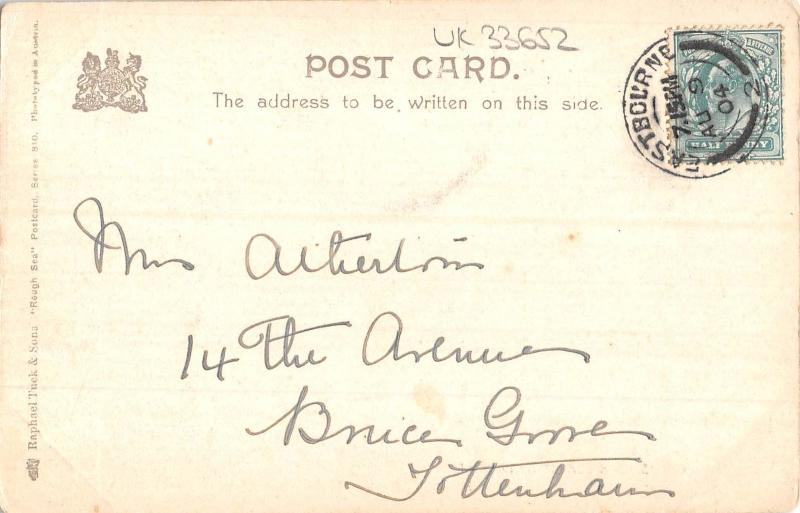 UK 33652
POST CARD.
The address to be written on this side.
EASTBOURNE
7.15PM
AU 9
04
2
HALFPENNY
Mrs Atherton
14 The Avenue
Bruce Grove
Tottenham
Raphael Tuck & Sons "Rough Sea" Postcard, Series 810, Phototyped in Austria.